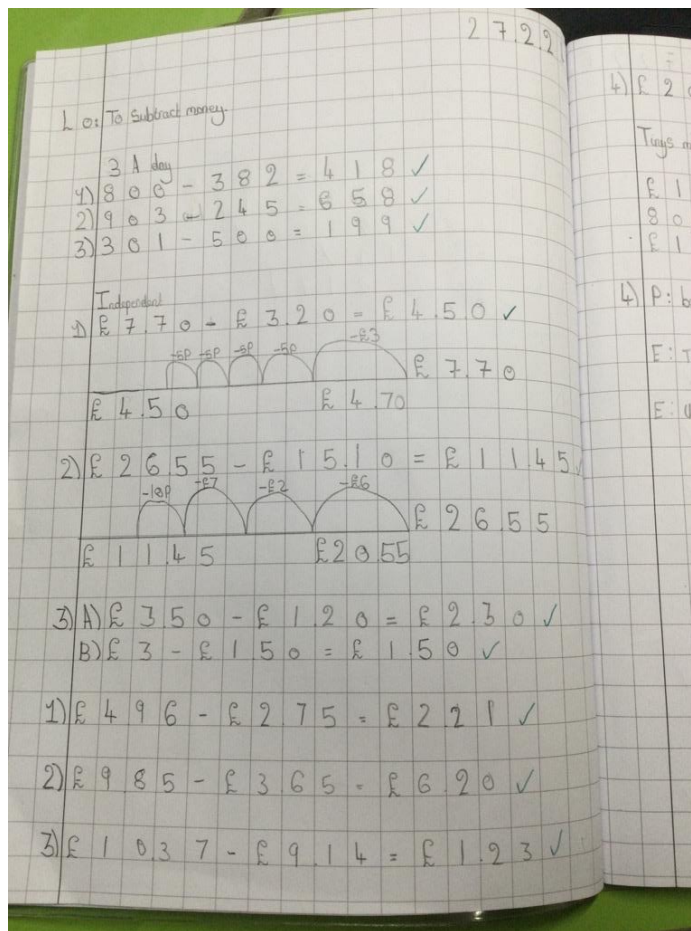 27.2.2
L O: To subtract money.
3 A day
1) 800 - 382 = 418 ✓
2) 903 - 245 = 658 ✓
3) 301 - 500 = 199 ✓
Independent
1) £7.70 - £3.20 = £4.50 ✓
-5P -5P -5P -5P -£3
£7.70
£4.50 £4.70
2) £26.55 - £15.10 = £11.45 ✓
-10P -£7 -£2 -£6
£26.55
£11.45 £20.55
3) A) £3.50 - £1.20 = £2.30 ✓
B) £3 - £1.50 = £1.50 ✓
1) £4.96 - £2.75 = £2.21 ✓
2) £9.85 - £3.65 = £6.20 ✓
3) £10.37 - £9.14 = £1.23 ✓
4) £2
Tinys m
£1
80
£1
4) P: b
E: T
E: